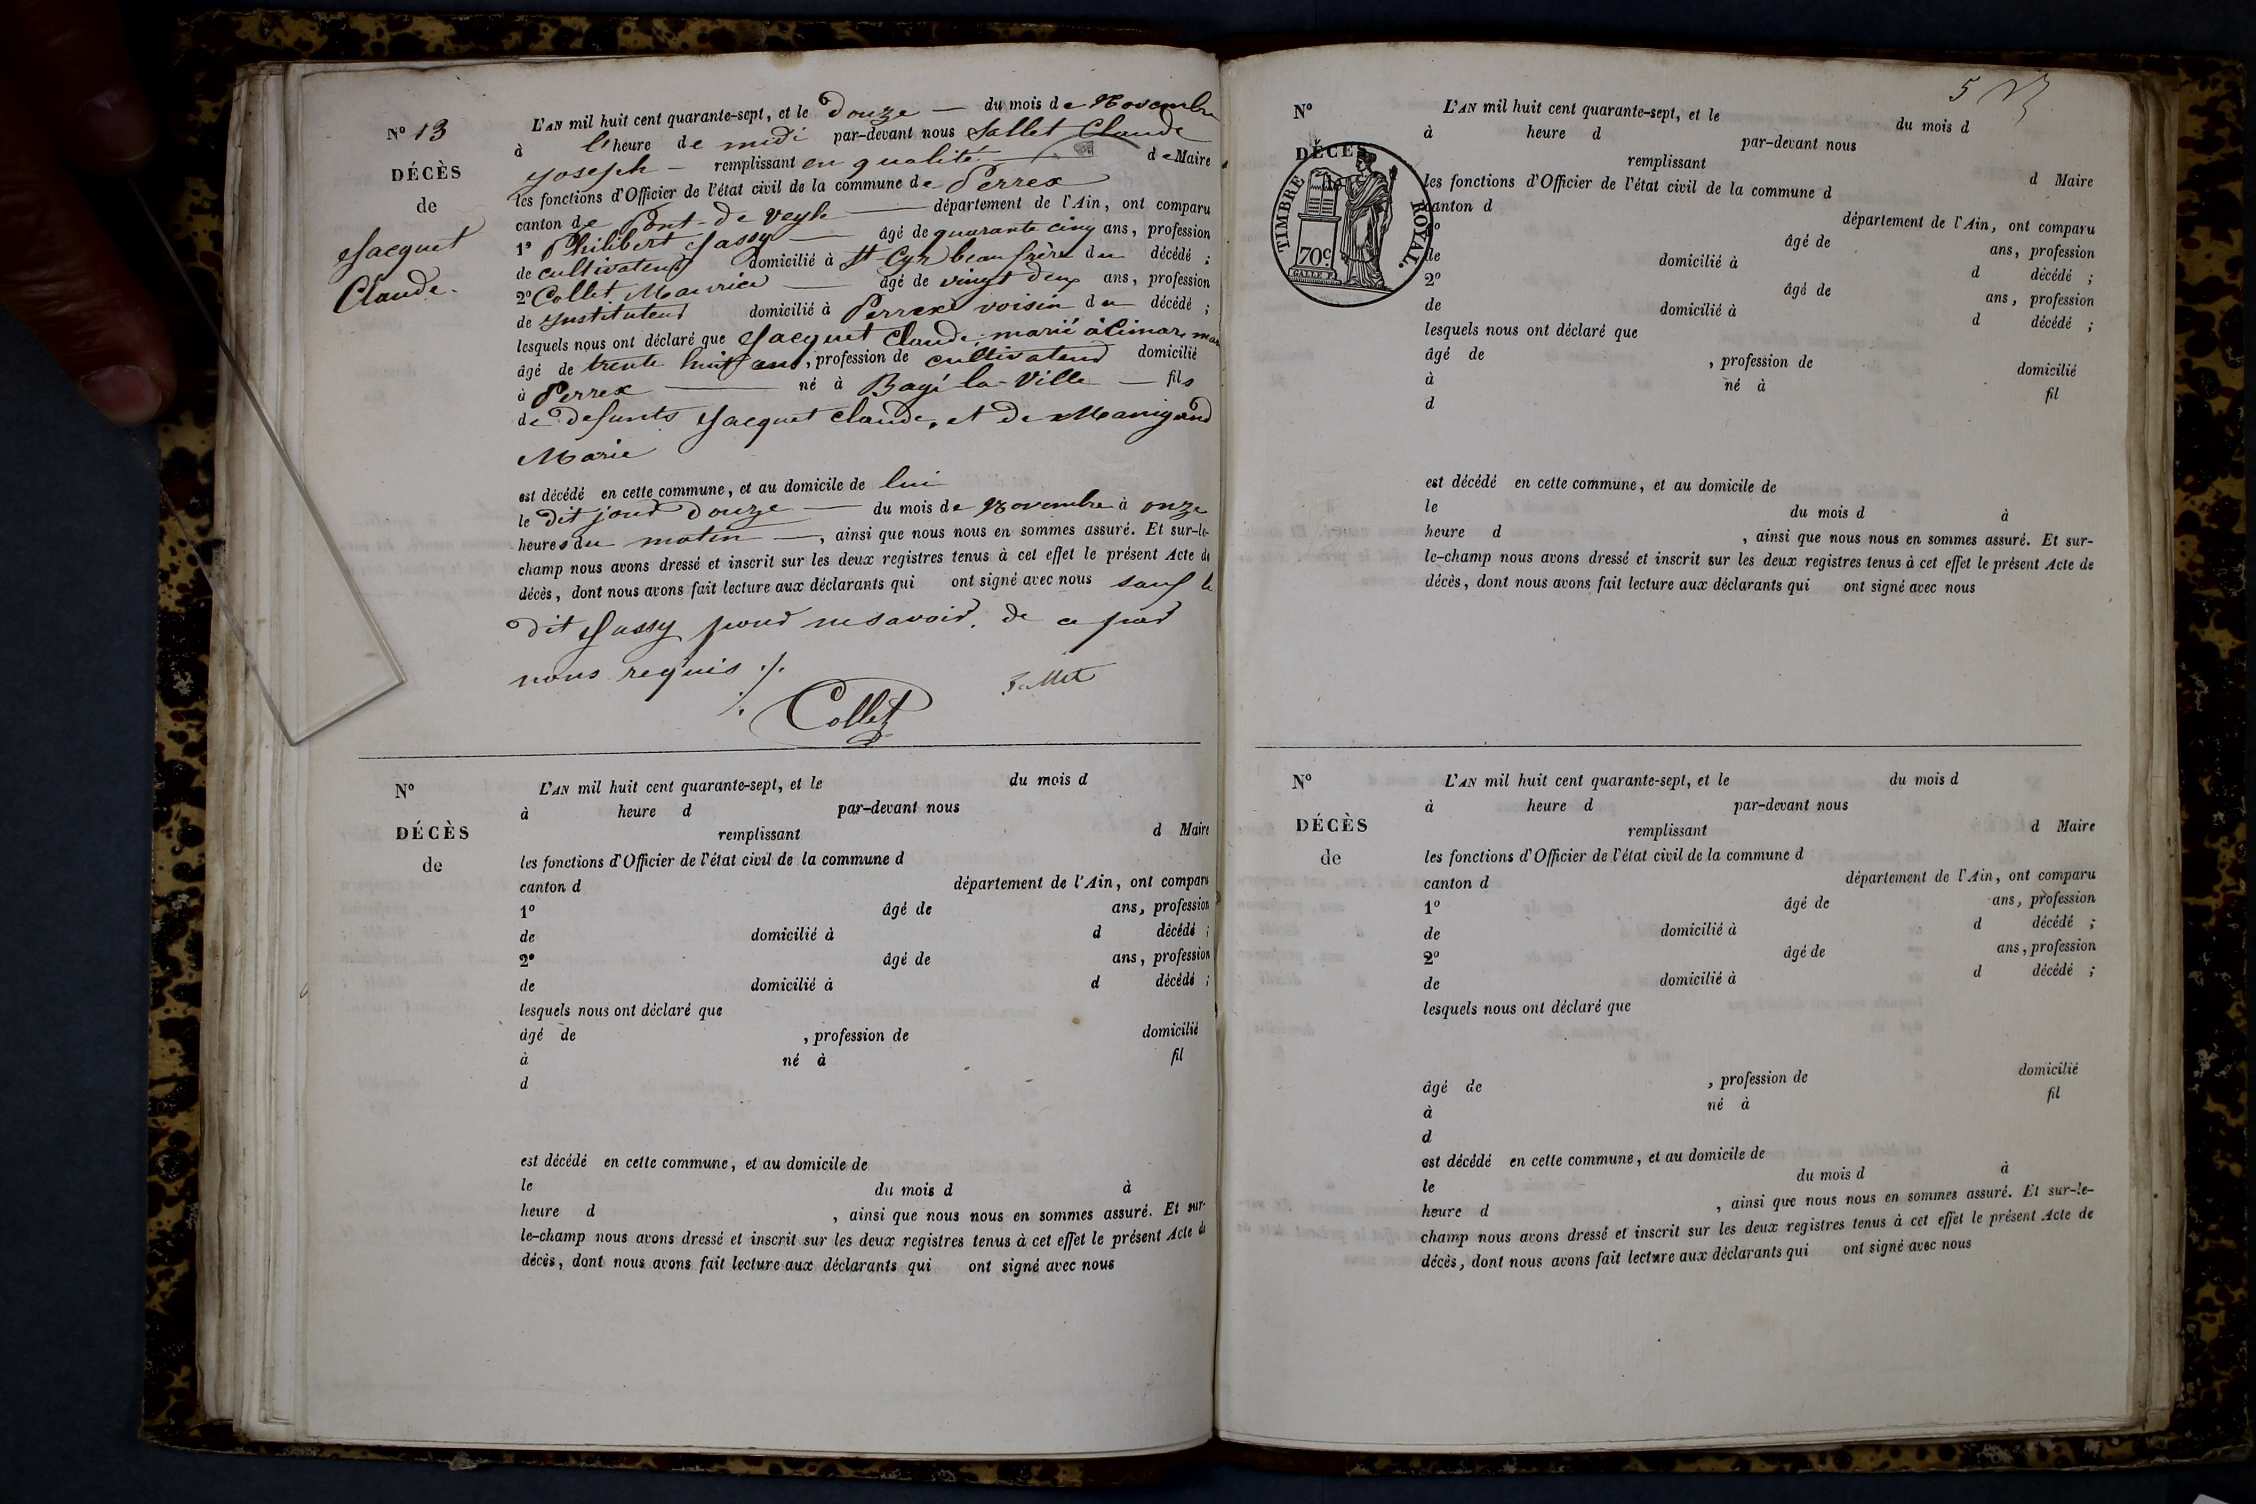 N° 13
DÉCÈS
de
Jacquet
Claude.
L'AN mil huit cent quarante-sept, et le Douze — du mois de Novembre
à l'heure de midi par-devant nous Sallet Claude
Joseph — remplissant en qualité de Maire
les fonctions d'Officier de l'état civil de la commune de Perrex
canton de Pont-de-Veyle — département de l'Ain, ont comparu
1° Philibert Jassy — âgé de quarante cinq ans, profession
de cultivateur domicilié à St Cyr beau frère du décédé ;
2° Collet Maurice — âgé de vingt deux ans, profession
de Instituteur domicilié à Perrex voisin du décédé ;
lesquels nous ont déclaré que Jacquet Claude, marié à
âgé de trente huit ans, profession de cultivateur domicilié
à Perrex — né à Bagé-la-Ville — fils
de defunts Jacquet Claude, et de Manigand
Marie
est décédé en cette commune, et au domicile de lui
le dit jour Douze — du mois de Novembre à onze
heures du matin —, ainsi que nous nous en sommes assuré. Et sur-le-
champ nous avons dressé et inscrit sur les deux registres tenus à cet effet le présent Acte de
décès, dont nous avons fait lecture aux déclarants qui ont signé avec nous sauf le
dit Jassy pour ne savoir. de ce par
nous requis ./.
Collet
N°
DÉCÈS
de
L'AN mil huit cent quarante-sept, et le du mois d
à heure d par-devant nous
remplissant d Maire
les fonctions d'Officier de l'état civil de la commune d
canton d département de l'Ain, ont comparu
1° âgé de ans, profession
de domicilié à d décédé ;
2° âgé de ans, profession
de domicilié à d décédé ;
lesquels nous ont déclaré que
âgé de , profession de domicilié
à né à fil
d
est décédé en cette commune, et au domicile de
le du mois d à
heure d , ainsi que nous nous en sommes assuré. Et sur-
le-champ nous avons dressé et inscrit sur les deux registres tenus à cet effet le présent Acte de
décès, dont nous avons fait lecture aux déclarants qui ont signé avec nous
5
N°
DÉCÈS
TIMBRE ROYAL.
70c.
L'AN mil huit cent quarante-sept, et le du mois d
à heure d par-devant nous
remplissant d Maire
les fonctions d'Officier de l'état civil de la commune d
canton d département de l'Ain, ont comparu
âgé de ans, profession
de domicilié à d décédé ;
2° âgé de ans, profession
de domicilié à d décédé ;
lesquels nous ont déclaré que
âgé de , profession de domicilié
à né à fil
d
est décédé en cette commune, et au domicile de
le du mois d à
heure d , ainsi que nous nous en sommes assuré. Et sur-
le-champ nous avons dressé et inscrit sur les deux registres tenus à cet effet le présent Acte de
décès, dont nous avons fait lecture aux déclarants qui ont signé avec nous
N°
DÉCÈS
de
L'AN mil huit cent quarante-sept, et le du mois d
à heure d par-devant nous
remplissant d Maire
les fonctions d'Officier de l'état civil de la commune d
canton d département de l'Ain, ont comparu
1° âgé de ans, profession
de domicilié à d décédé ;
2° âgé de ans, profession
de domicilié à d décédé ;
lesquels nous ont déclaré que
âgé de , profession de domicilié
à né à fil
d
est décédé en cette commune, et au domicile de
le du mois d à
heure d , ainsi que nous nous en sommes assuré. Et sur-le-
champ nous avons dressé et inscrit sur les deux registres tenus à cet effet le présent Acte de
décès, dont nous avons fait lecture aux déclarants qui ont signé avec nous